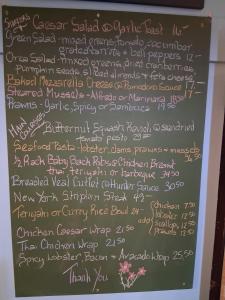 Starters
Caesar Salad @ Garlic Toast 16-
Green Salad - mixed greens tomato, cucumber
grated carrots + bell peppers 12-
Orca Salad - mixed greens dried cranberries
Pumpkin seeds sliced almonds + feta cheese
Baked Mozzarella Cheese @ Pomodoro Sauce 17-
Steamed Mussels - Alfredo or Marinara 18.50
Prawns - Garlic, Spicy or Dambuca 19.50
Main Courses
Butternut Squash Ravioli @ sundried
tomato pesto
Seafood Pasta - lobster, clams, prawns + mussels
36.50
½ Rack Baby Back Ribs @ Chicken Breast
thai teriyaki or barbeque 34.50
Breaded Veal Cutlet @ Hunter Sauce 30.50
New York Striploin Steak 43-
Teriyaki or Curry Rice Bowl 24-
add
Chicken 7.50
lobster 12.50
scallops 12.50
prawns 13.50
Chicken Caesar Wrap 21.50
Thai Chicken Wrap 21.50
Spicy Lobster Bacon + Avocado Wrap 25.50
Thank You